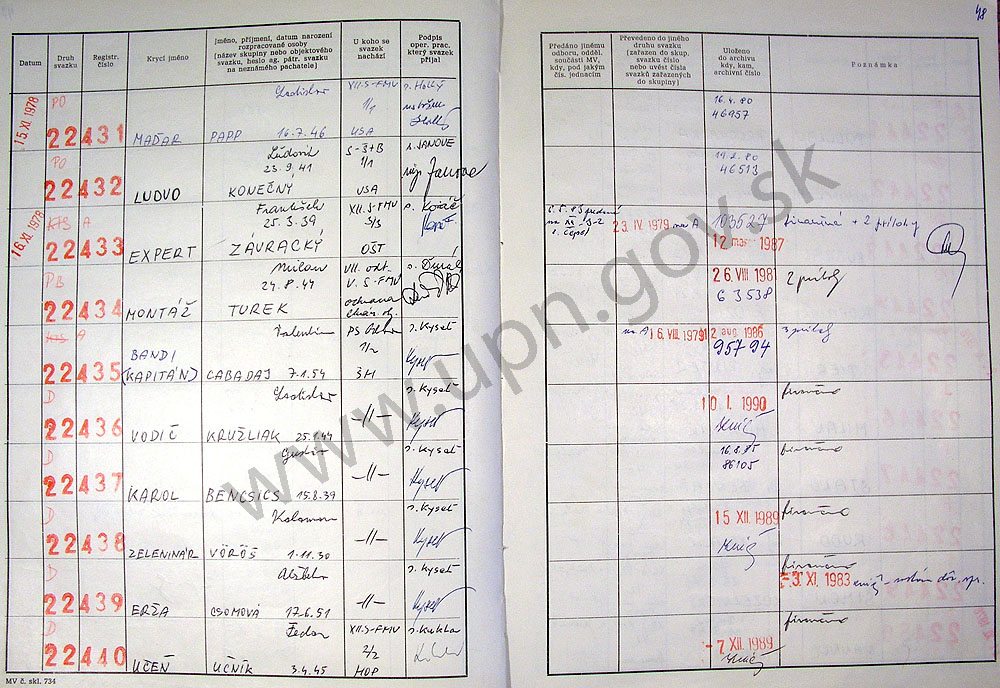 48
Datum
Druh svazku
Registr. číslo
Krycí jméno
Jméno, příjmení, datum narození
rozpracované osoby
(název skupiny nebo objektového
svazku, heslo ag. pátr. svazku
na neznámého pachatele)
U koho se
svazek
nachází
Podpis
oper. prac.
který svazek
přijal
Předáno jinému
odboru, odděl.
součásti MV,
kdy, pod jakým
čís. jednacím
Převedeno do jiného
druhu svazku
(zařazen do skup.
svazku číslo
nebo uvést čísla
svazků zařazených
do skupiny)
Uloženo
do archivu
kdy, kam,
archivní číslo
Poznámka
15. XI. 1978
PO
22431
MAĎAR
Ladislav
PAPP 16.7.46
XII.S-FMV
1/1
USA
s. Hollý
16.4.80
46957
PO
22432
LUDVO
Ľudovít
23.9.41
KONEČNÝ
S-ŠtB
1/1
USA
s. JANOVE
19.2.80
46513
16. XI. 1978
KTS A
22433
EXPERT
František
25.3.39
ZÁVRACKÝ
XII.S-FMV
3/3
OŠT
s. Kováč
23. IV. 1979 na A
103527
12 1987
finančné + 2 prílohy
PB
22434
MONTÁŽ
Milan
24.8.44
TUREK
VII. odb.
V. S-FMV
ochrana
26. VIII 1987
63538
2 prílohy
KTS A
22435
BANDI
(KAPITÁN)
Valentín
CABADAJ 7.1.54
1/2
ŠM
s. Kyseľ
na A 16. VIII. 1979
12 aug 1986
95794
3 príloh
D
22436
VODIČ
Ladislav
KRUŽLIAK
-//-
s. Kyseľ
10. I. 1990
finančné
D
22437
KAROL
Gustáv
BENCSICS 15.8.39
-//-
s. Kyseľ
16.8.85
86105
finančné
D
22438
ZELENINÁR
Koloman
VÖRÖŠ 1.11.30
-//-
s. Kyseľ
15 XII. 1989
finančné
D
22439
ERŽA
Alžbeta
CSOMOVÁ 17.6.51
-//-
s. Kyseľ
finančné
-3. XI. 1983
D
22440
UČEŇ
Fedor
UČNÍK 3.4.45
XII.S-FMV
2/2
HOP
s. Kukla
-7 XII. 1989
finančné
MV č. skl. 734
www.upn.gov.sk